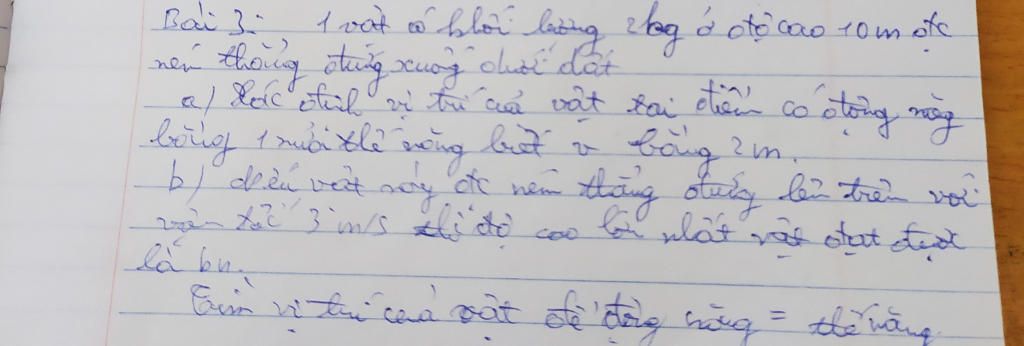 Bài 3: 1 vật có khối lượng 2kg ở độ cao 10m đc
ném thẳng đứng xuống dưới đất
a) Xác định vị trí của vật tại điểm có động năng
bằng 1 nửa thế năng biết v bằng 2m.
b) Nếu vật này đc ném thẳng đứng lên trên với
vận tốc 3m/s thì độ cao lớn nhất vật đạt được
là bn.
Tìm vị trí của vật để động năng = thế năng